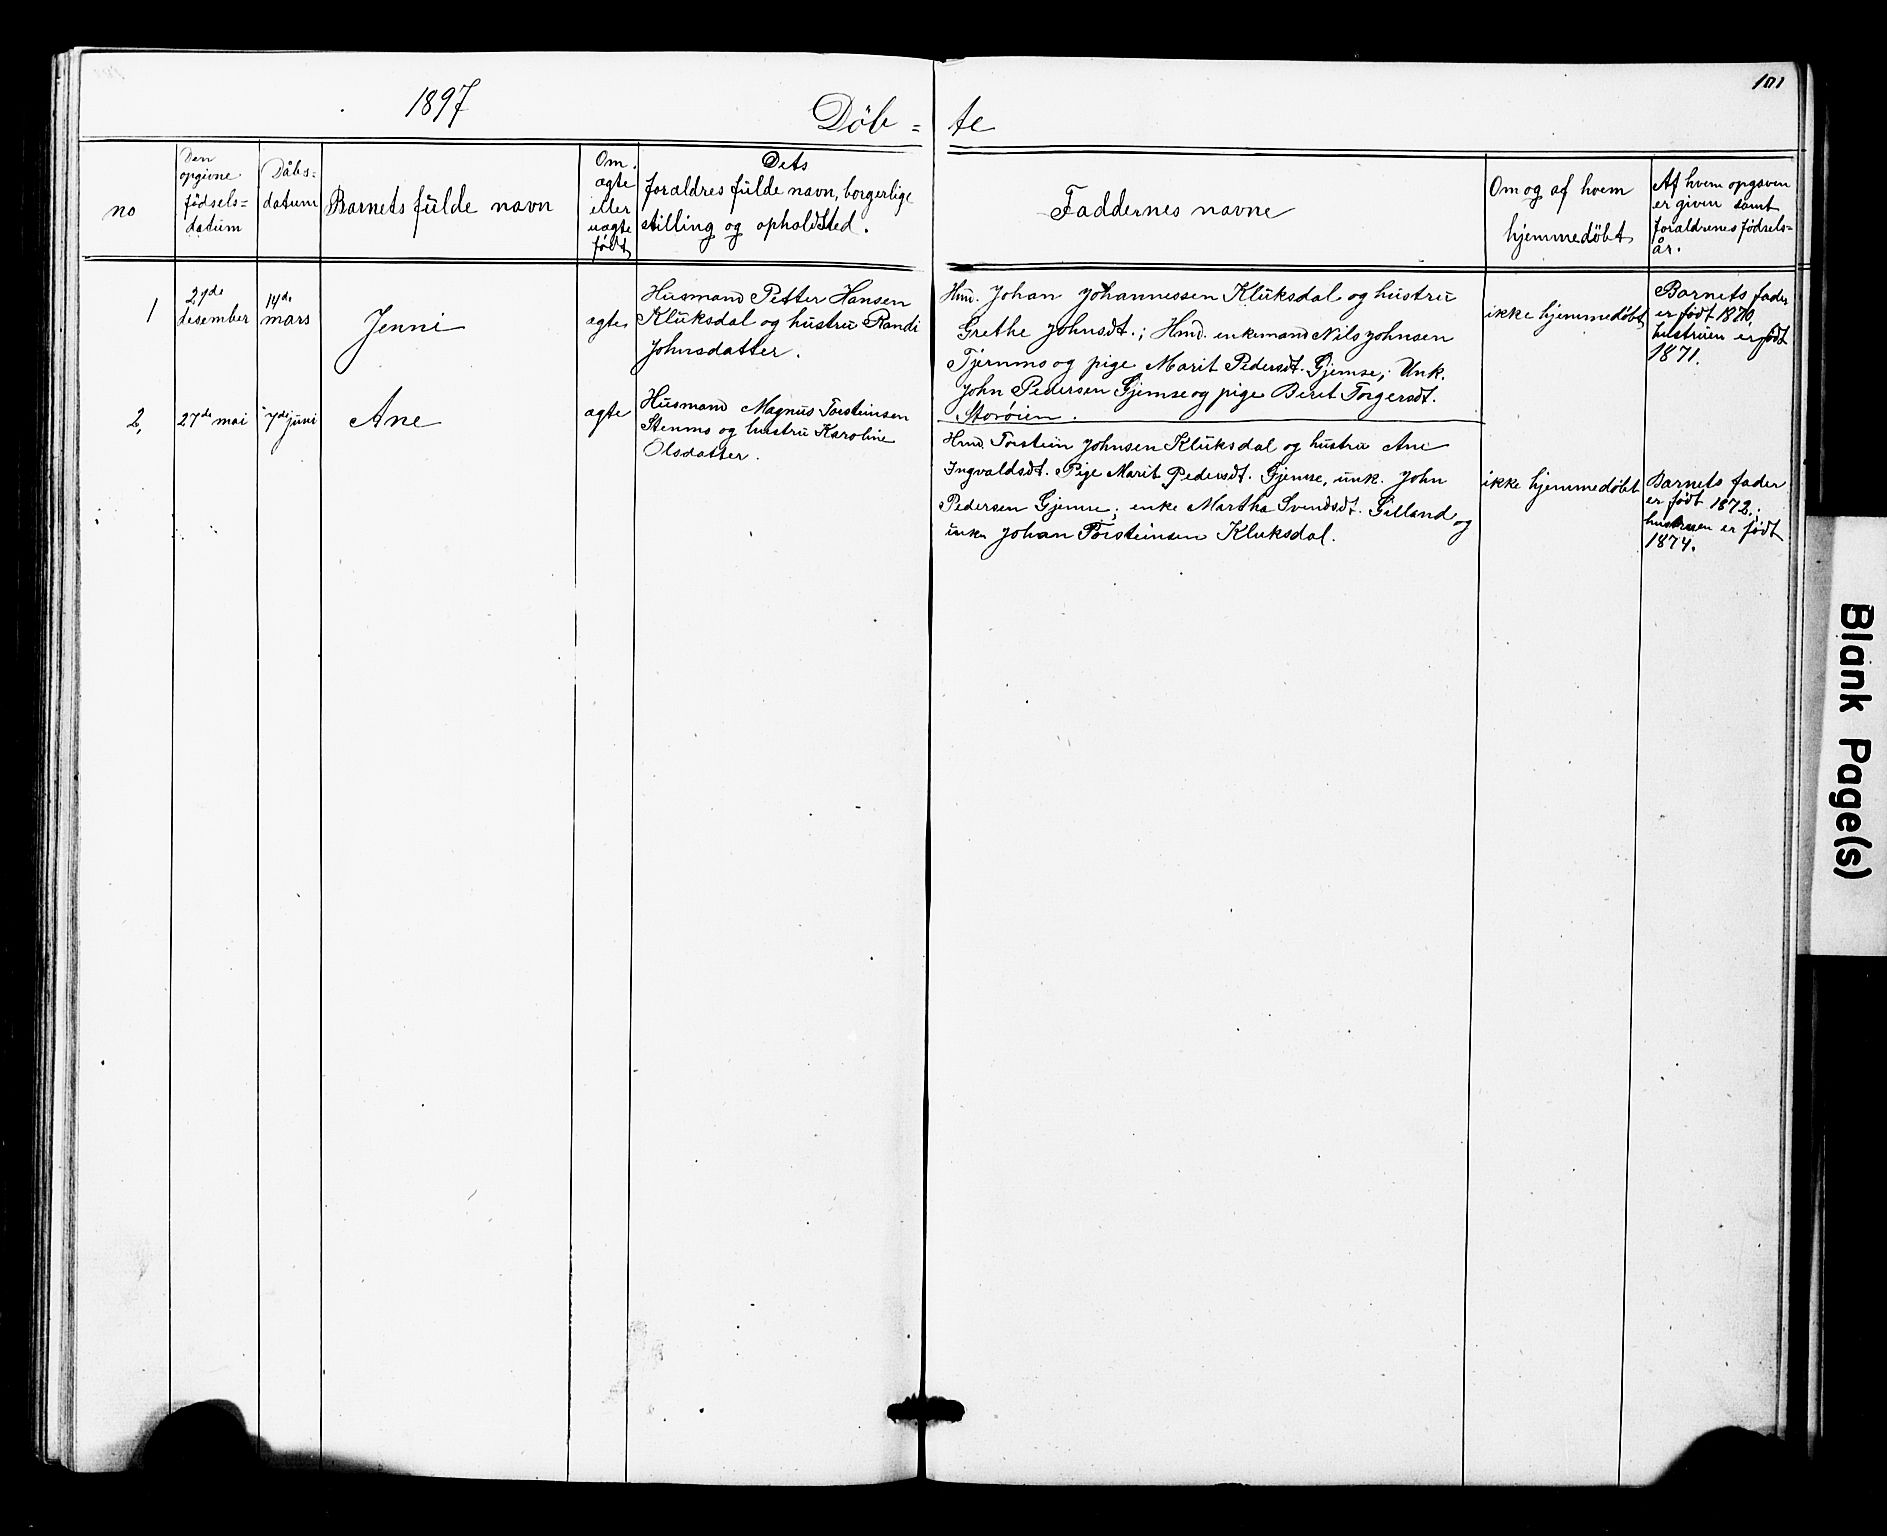 1897
Döb = te
101
no
Den
opgivne
födsels=
datum
Dåbs=
datum
Barnets fulde navn
Om
ægte
eller
uægte
født
Dets
forældres fulde navn, borgerlige
stilling og opholdsted.
Faddernes navne
Om og af hvem
hjemmedöbt
Af hvem opgaven
er given samt
forældrenes födsels=
år.
1
27de
desember
14de
mars
Jenni
ægte
Husmand Petter Hansen
Kluksdal og hustru Randi
Johnsdatter.
Hmd. Johan Johannessen Kluksdal og hustru
Grethe Johnsdt.; Hmd. enkemand Nils Johnsen
Tjernmo og pige Marit Pedersdt. Gjemse; Unk.
John Pedersen Gjemse og pige Berit Torgersdt.
Storöien.
ikke hjemmedöbt
Barnets fader
er født 1870,
hustruen er født
1871.
2,
27de mai
7de juni
Ane
ægte
Husmand Magnus Torsteinsen
Stenmo og hustru Karoline
Olsdatter.
Hmd. Torstein Johnsen Kluksdal og hustru Ane
Ingvaldsdt. Pige Marit Pedersdt. Gjemse, unk. John
Pedersen Gjemse; enke Martha Svendsdt. Gilland og
unk. Johan Torsteinsen Kluksdal.
ikke hjemmedöbt
Barnets fader
er født 1872.;
hustruen er født
1874.
Blank Page(s)